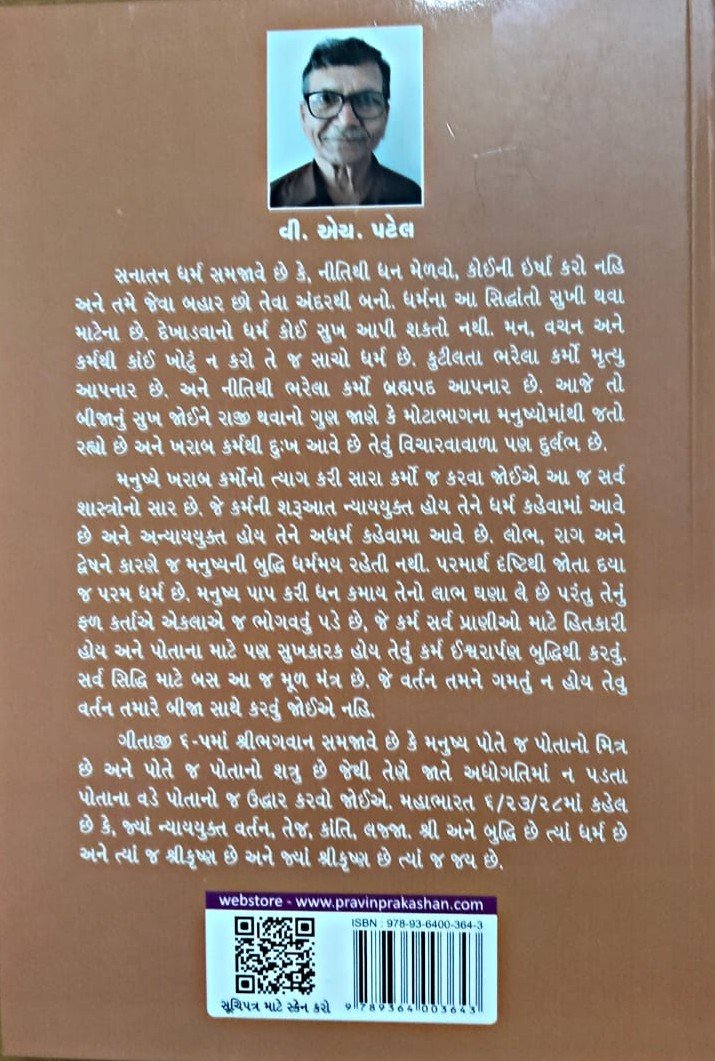 વી. એચ. પટેલ
સનાતન ધર્મ સમજાવે છે કે, નીતિથી ધન મેળવો, કોઈની ઇર્ષા કરો નહિ
અને તમે જેવા બહાર છો તેવા અંદરથી બનો. ધર્મના આ સિદ્ધાંતો સુખી થવા
માટેના છે. દેખાડવાનો ધર્મ કોઈ સુખ આપી શકતો નથી. મન, વચન અને
કર્મથી કાંઈ ખોટું ન કરો તે જ સાચો ધર્મ છે. કુટીલતા ભરેલા કર્મો મૃત્યુ
આપનાર છે. અને નીતિથી ભરેલા કર્મો બ્રહ્મપદ આપનાર છે. આજે તો
બીજાનું સુખ જોઈને રાજી થવાનો ગુણ જાણે કે મોટાભાગના મનુષ્યોમાંથી જતો
રહ્યો છે અને ખરાબ કર્મથી દુઃખ આવે છે તેવું વિચારવાવાળા પણ દુર્લભ છે.
મનુષ્યે ખરાબ કર્મોનો ત્યાગ કરી સારા કર્મો જ કરવા જોઈએ આ જ સર્વ
શાસ્ત્રોનો સાર છે. જે કર્મની શરૂઆત ન્યાયયુક્ત હોય તેને ધર્મ કહેવામાં આવે
છે અને અન્યાયયુક્ત હોય તેને અધર્મ કહેવામા આવે છે. લોભ, રાગ અને
દ્વેષને કારણે જ મનુષ્યની બુદ્ધિ ધર્મમય રહેતી નથી. પરમાર્થ દૃષ્ટિથી જોતા દયા
જ પરમ ધર્મ છે. મનુષ્ય પાપ કરી ધન કમાય તેનો લાભ ઘણા લે છે પરંતુ તેનું
ફળ કર્તાએ એકલાએ જ ભોગવવું પડે છે, જે કર્મ સર્વ પ્રાણીઓ માટે હિતકારી
હોય અને પોતાના માટે પણ સુખકારક હોય તેવું કર્મ ઈશ્વરાર્પણ બુદ્ધિથી કરવું.
સર્વ સિદ્ધિ માટે બસ આ જ મૂળ મંત્ર છે. જે વર્તન તમને ગમતું ન હોય તેવુ
વર્તન તમારે બીજા સાથે કરવું જોઈએ નહિ.
ગીતાજી ૬-૫માં શ્રીભગવાન સમજાવે છે કે મનુષ્ય પોતે જ પોતાનો મિત્ર
છે અને પોતે જ પોતાનો શત્રુ છે જેથી તેણે જાતે અધોગતિમાં ન પડતા
પોતાના વડે પોતાનો જ ઉદ્ધાર કરવો જોઈએ. મહાભારત ૬/૨૩/૨૮માં કહેલ
છે કે, જ્યાં ન્યાયયુક્ત વર્તન, તેજ, કાંતિ, લજ્જા, શ્રી અને બુદ્ધિ છે ત્યાં ધર્મ છે
અને ત્યાં જ શ્રીકૃષ્ણ છે અને જ્યાં શ્રીકૃષ્ણ છે ત્યાં જ જય છે.
webstore - www.pravinprakashan.com
ISBN : 978-93-6400-364-3
સૂચિપત્ર માટે સ્કેન કરો
9 789364 003643